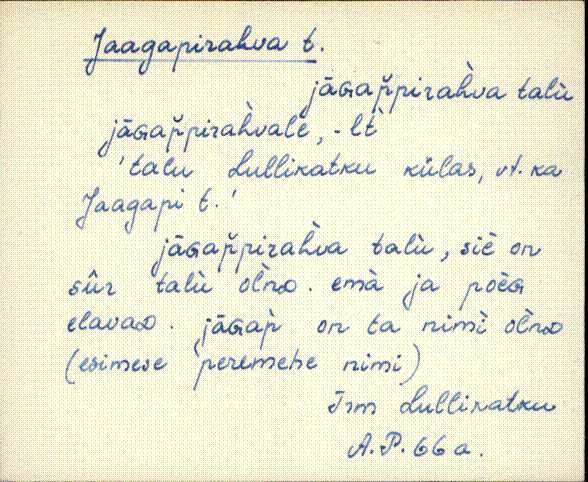 Jaagapirahva t.
jāGap̆pirah̀va talù
jāGap̆pirah̀vale, -lt̀
'talu Lullikatku külas, vt. ka
Jaagapi t.'
jāGap̆pirah̀va talù, siè on
sūr talù olǹD. emà ja poèG
elavaD. jāGap̀ on ta nimì olǹD
(esimese peremehe nimi)
Trm Lullikatku
A.P. 66 a.